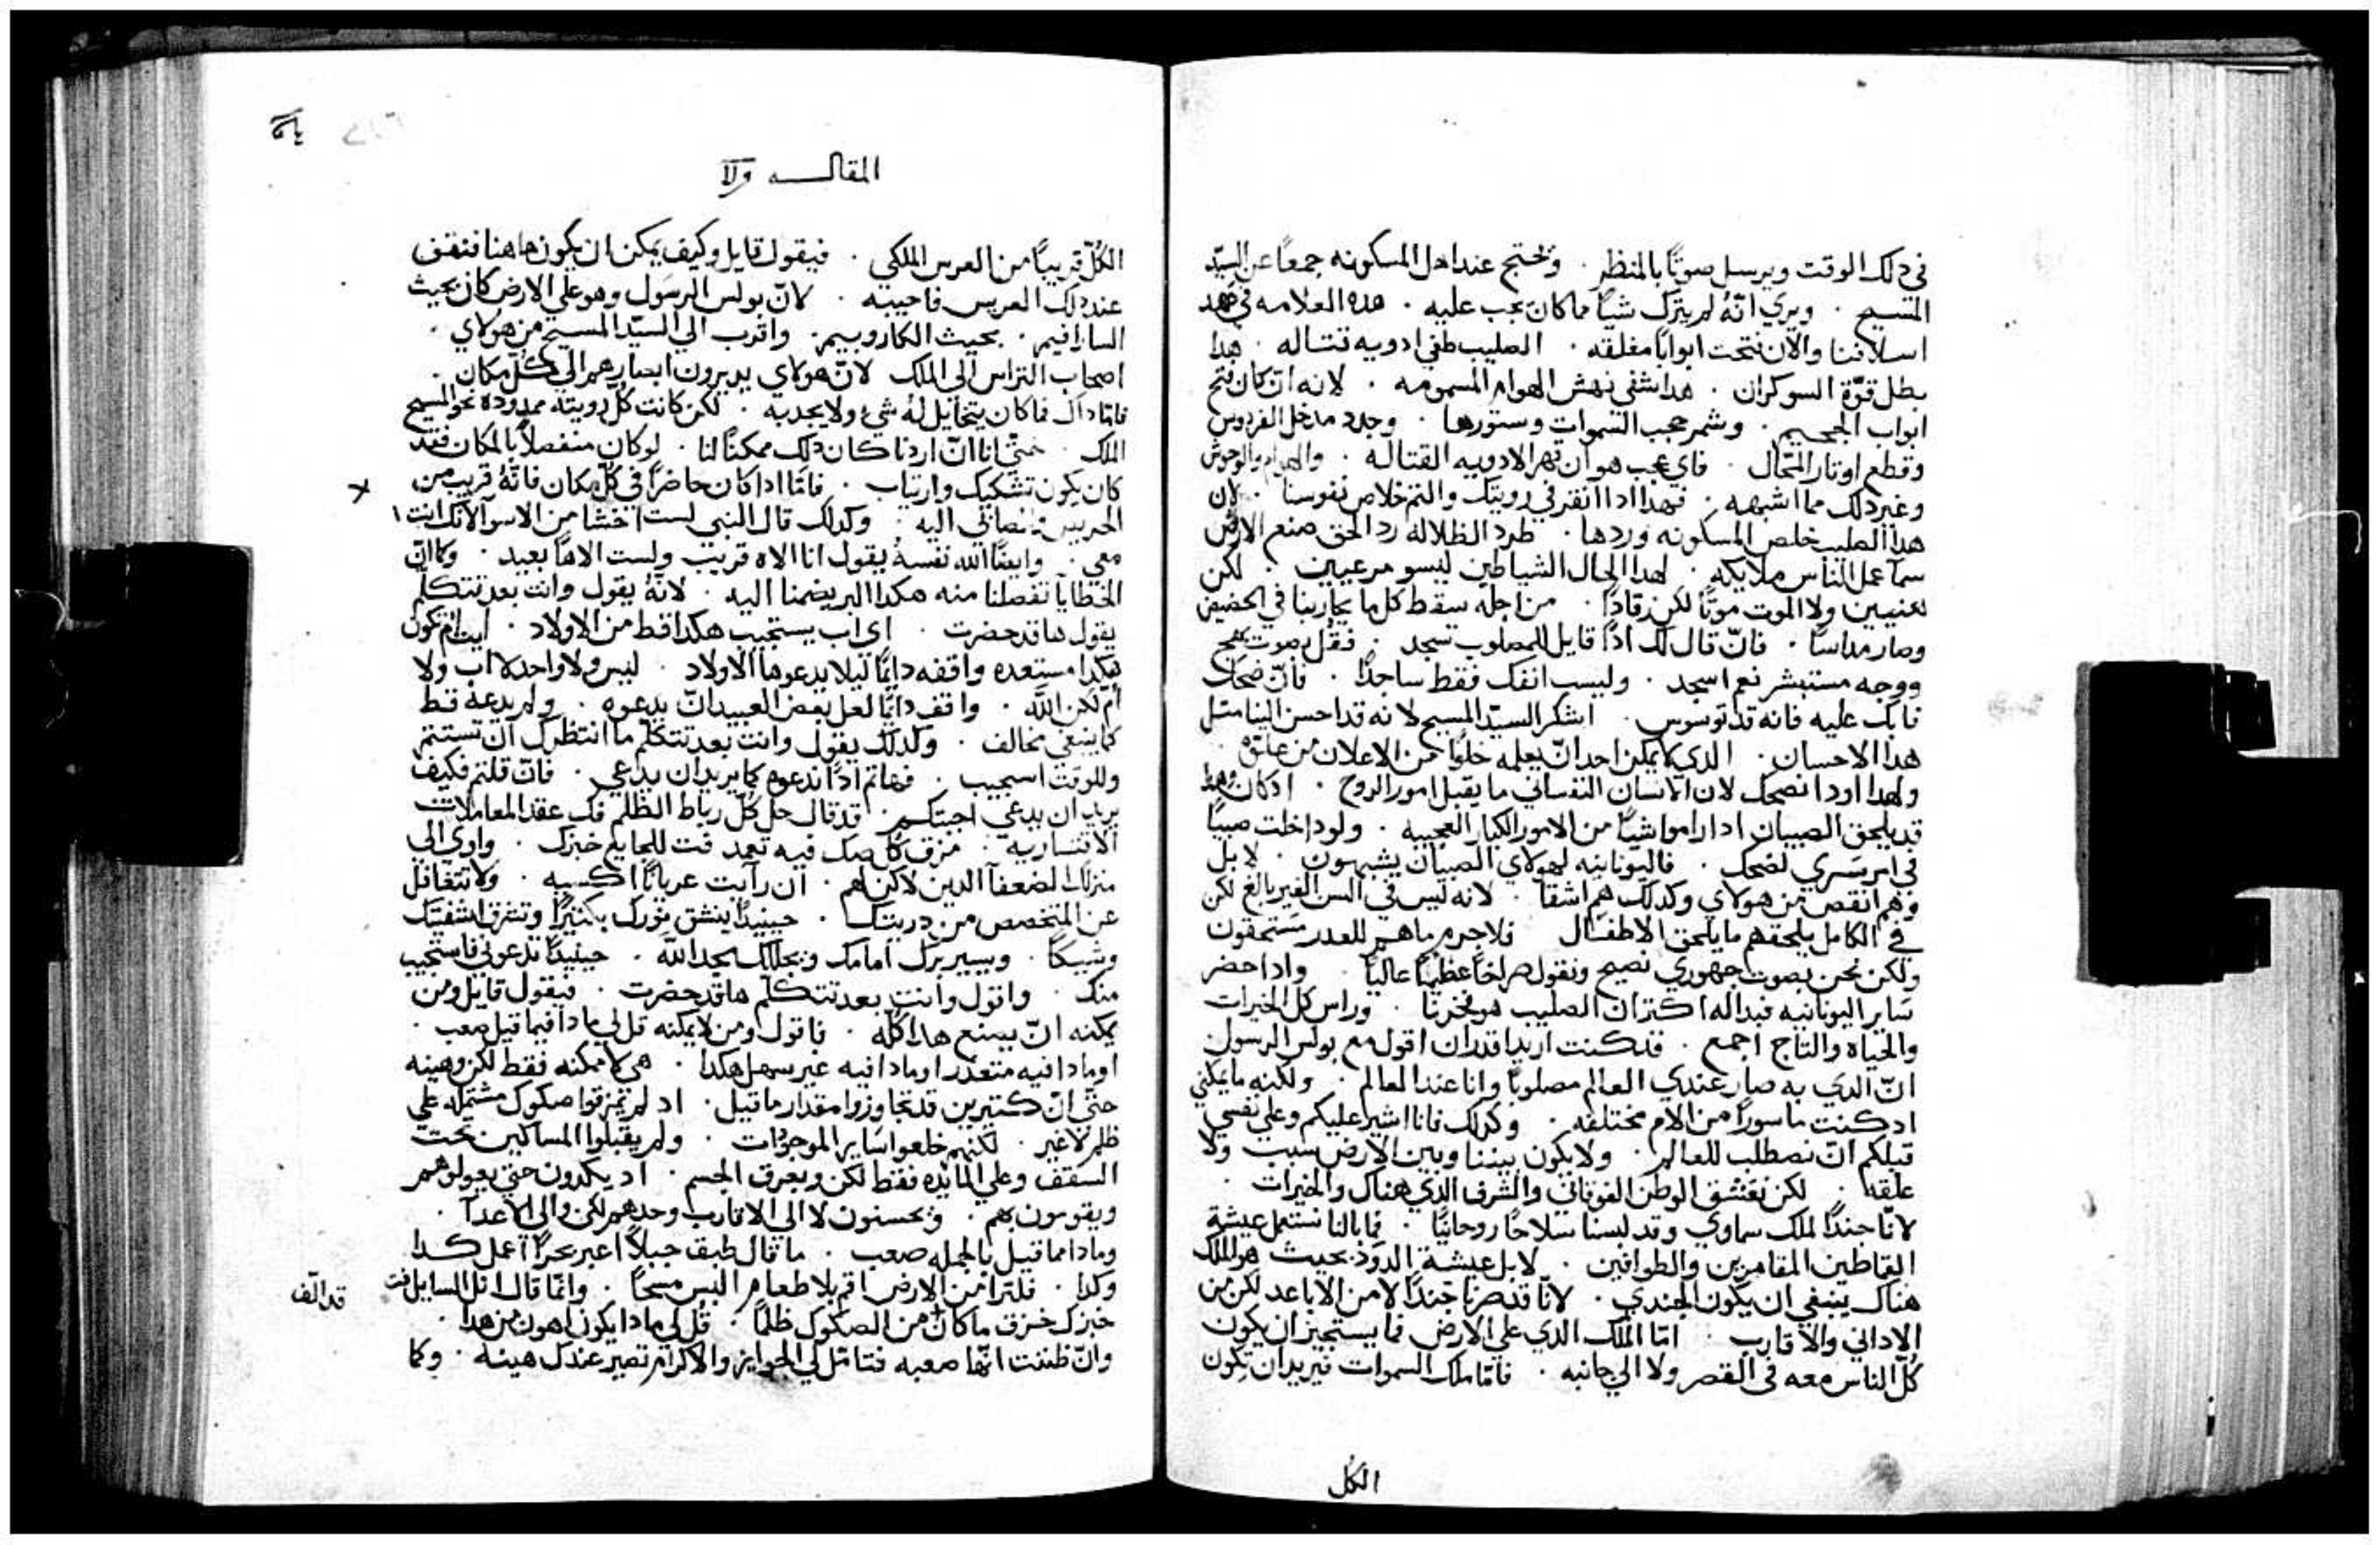 في دلك الوقت ويرسل صوتًا بالمنظر . ويحتج عند اهل المسكونه جمعًا عن السيّد
المسيح . ويري انّهُ لم يترك شيًا مما كان يجب عليه . هده العلامه في عهد
اسلافنا والان فتحت ابوابًا مغلقه . الصليب طفي ادويه قتاله . هدا
بطل قوّة السوكران . هدا شفي نهش الهوام المسمومه . لانه ان كان فتح
ابواب الجحيم . وشمر حجب السموات وستورها . وجدد مدخل الفردوس
وقطع اوتار المحّال . فاي عجب هو ان قهر الادويه القتاله . والهوام والوحوش
وغير دلك مما اشبهه . فهدا ادا انقر في رويتك والتم خلاص نفوسنا . لان
هدا الصليب خلص المسكونه وردها . طرد الظلاله رد الحق صنع الارض
سما عمل الناس ملايكه . لهدا الحال الشياطين ليسو مرعبين . لكن
لعنيين ولا الموت موتًا لكن رقادًا . من اجله سقط كل ما يحاربنا في الحضيض
وصار مداسًا . فانّ قال لك ادًا قايل للمصلوب تسجد . فقُل بصوت بهج
ووجه مستبشر نعم اسجد . وليست انفك فقط ساجدًا . فانّ ضحك
فابك عليه فانه قد توسوس . اشكر السيّد المسيح لانه قد احسن الينا مثل
هدا الاحسان . الدي لا يمكن احد انّ يعلمه خلوًا من الاعلان من علوّه .
ولهدا اودا نضحك لان الانسان النفساني ما يقبل امور الروح . ادكان وهدا
قد يلحق الصبيان ادا راموا شيًا من الامور الكبار العجيبه . ولو داخلت صبيًا
في امر سَري لضحك . فاليونانيه لهولاي الصبيان يشبهون . لا بل
وهم انقص من هولاي وكدلك هم اشقا . لانه ليس في السن الغير بالغ لكن
في الكامل يلحقهم ما يلحق الاطفال فلاجرم ما هم للعدر مستحقون
ولكن نحن بصوت جهوري نصيح ونقول صراخًا عظيمًا عاليًا . وادا حضر
سَاير اليونانيه فبداله اكتر ان الصليب هو فخرنا . وراس كل الخيرات
والحياه والتاج اجمع . فلكنت اريد اقدر ان اقول مع بولس الرسول
انّ الدي به صار عندي العالم مصلوبًا وانا عند العالم . ولكنه ما يمكني
ادكنت ماسورًا من الام مختلفه . وكدلك فانا اشير عليكم وعلي نفسي
قبلكم انّ نصطلب للعالم . ولا يكون بيننا وبين الارض سبب ولا
علقه . لكن نعشق الوطن الفوقاني والشرف الدي هناك والخيرات .
لانّا جندًا لملك سماوي وقد لبسنا سلاحًا روحانيًا . فما بالنا نستعمل عيشة
القاطين المقامرين والطوافين . لا بل عيشة الدود . بحيث هو الملك
هناك ينبغي ان يكون الجندي . لانّا قد صرنا جندًا لا من الاباعد لكن من
الاداني والاقارب . امّا الملك الدي علي الارض فما يستجيز ان يكون
كلّ الناس معه في القصر ولا الي جانبه . فامّا ملك السموات فيريد ان يكون
الكل
المقالـــه
الكُلّ قريبًا من العرس الملكي . فيقول قايل وكيف يمكن ان يكون هاهنا فنقف
عند دلك العريس فاجيبه . لانّ بولس الرسَول وهو علي الارض كان بحيث
السارافيم . بحيث الكاروبيم . واقرب الي السيّد المسيح من هولاي .
اصحاب التراس الي الملك لانّ هولاي يديرون ابصارهم الي كل مكان .
فامّا داك فما كان يتخايل لهُ شيء ولا يجدبه . لكن كانت كُل رويته ممدوده نحو المسيح
الملك . حتّي انّا انّ اردنا كان دلك ممكنًا لنا . لو كان منفصلاً بالمكان فقد
كان يكون تشكيك وارتياب . فامّا ادا كان حاضرًا في كُلّ مكان فانّهُ قريب من
الحريص المضاف اليه . وكدلك قال النبي لست اخشا من الاسوا لانّك انت
معي . وايضًا الله نفسهُ يقول انا الاه قريب ولست الاهًا بعيد . وكما انّ
الخطايا تفصلنا منه هكدا البر يضمنا اليه . لانّهُ يقول وانت بعد تتكلّم
يقول هاقد حضرت . اي اب يستجيب هكدا قط من الاولاد . ايت ام تكون
هكدا مستعده واقفه دايمًا ليلا يدعوها الاولاد . ليس ولا واحد لا اب ولا
أمّ لكن اللَّه . واقف دايمًا لعل بعض العبيد انّ يدعوه . ولم يدعهُ قط
كما ينبغي مخالف . ولدلك يقول وانت بعد تتكلّم ما انتظرك ان تستتم
وللوقت استجيب . فهاتم ادًا ندعوه كما يريد ان يدعي . فانّ قلتم فكيف
يريد ان يدعي اجبتكم . قد قال حل كُلّ رباط الظلم فك عقد المعاملات
الاقتساريه . مزق كُل صك فيه تعمد فت للجايع خبزك . واوي الي
منزلك الضعفا الدين لا كن لهم . ان رايت عريانًا اكسيه . ولا تتغافل
عن المتخصص من دريتك . حينيدًا ينشق نورك بكيرًا وتشرق اشفيتك
وشيكًا . ويسير برك امامك ونجللك بمجد اللّه . حينيدًا تدعوني فاستجيب
منك . واقول وانت بعد تتكلّم هاقد حضرت . فيقول قايل ومن
يمكنه انّ يصنع هدا كلّه . فاقول ومن لا يمكنه قل لي مادا فيما قيل صعب .
او مادا فيه متعدر او مادا فيه غير سهل هكدا . هي لا ممكنه فقط لكن وهينه
حتّي انّ كتيرين قد تجاوزوا مقدار ما قيل . اد لم يمزقوا صكوك مشتمله علي
ظلم لا غير . لكنهم خلعوا سَاير الموجودات . ولم يقبلوا المساكين تحت
السقف وعلي المايده فقط لكن وبعرق الجسم . اد يكدون حتي يعولوهم
ويقومون بهم . ويحسنون لا الي الاقارب وحدهم لكن والي الاعدا .
ومادا مما قيل بالجمله صعب . ما قال طبق جبلاً اعبر بحرًا اعمل كدا
وكدا . فلترًا من الارض اقم بلا طعام البس مسحًا . وانّما قال انل السايل فت
قد الّف
خبزك خرق ما كان من الصكوك ظلمًا . قُل لي مادا يكون اهون من هدا .
وانّ ظننت انّها صعبه فتامل لي الجوايز والاكرام تصير عندك هينه . وكما